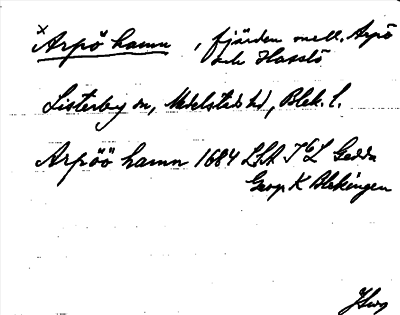 x Arpö hamn, fjärden mell. Arpö
och Hasslö
Listerby sn, Medelstads hd, Blek. l.
Arpöö hamn 1684 LSA Gedda
Geogr K Blekingen